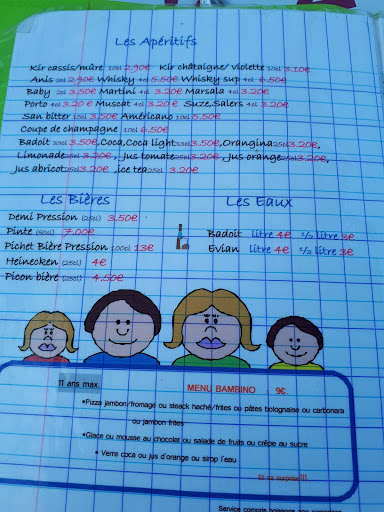 Les Apéritifs
Kir cassis/mûre 10cl 2.90€ Kir châtaigne/ violette 10cl 3.10€
Anis 2cl 2.90€ Whisky 4cl 5.50€ Whisky sup 4cl 6.50€
Baby 2cl 3.50€ Martini 4cl 3.20€ Marsala 4cl 3.20€
Porto 4cl 3.20 € Muscat 4cl 3.20 € Suze,Salers 4cl 3.20€
San bitter 15cl 3.50€ Américano 10cl 5.50€
Coupe de champagne 10cl 6.50€
Badoit 33cl 3.50€,Coca,Coca light 33cl 3.50€,Orangina 25cl 3.20€,
Limonade 25cl 3.20€ , Jus tomate 25cl 3.20€ , Jus orange 25cl 3.20€,
Jus abricot 25cl 3.20€ ,ice tea 25cl 3.20€
Les Bières
Demi Pression (25cl) 3.50€
Pinte (50cl) 7.00€
Pichet Bière Pression 100cl 13€
Heinecken (25cl) 4€
Picon bière (25cl) 4.50€
Les Eaux
Badoit litre 4€ ½ litre 3€
Evian litre 4€ ½ litre 3€
11 ans max. MENU BAMBINO 9€
•Pizza jambon/fromage ou steack haché/frites ou pâtes bolognaise ou carbonara
ou jambon frites
•Glace ou mousse au chocolat ou salade de fruits ou crêpe au sucre
• Verre coca ou jus d'orange ou sirop l'eau
Et sa surprise!!!
Service compris boissons non comprises